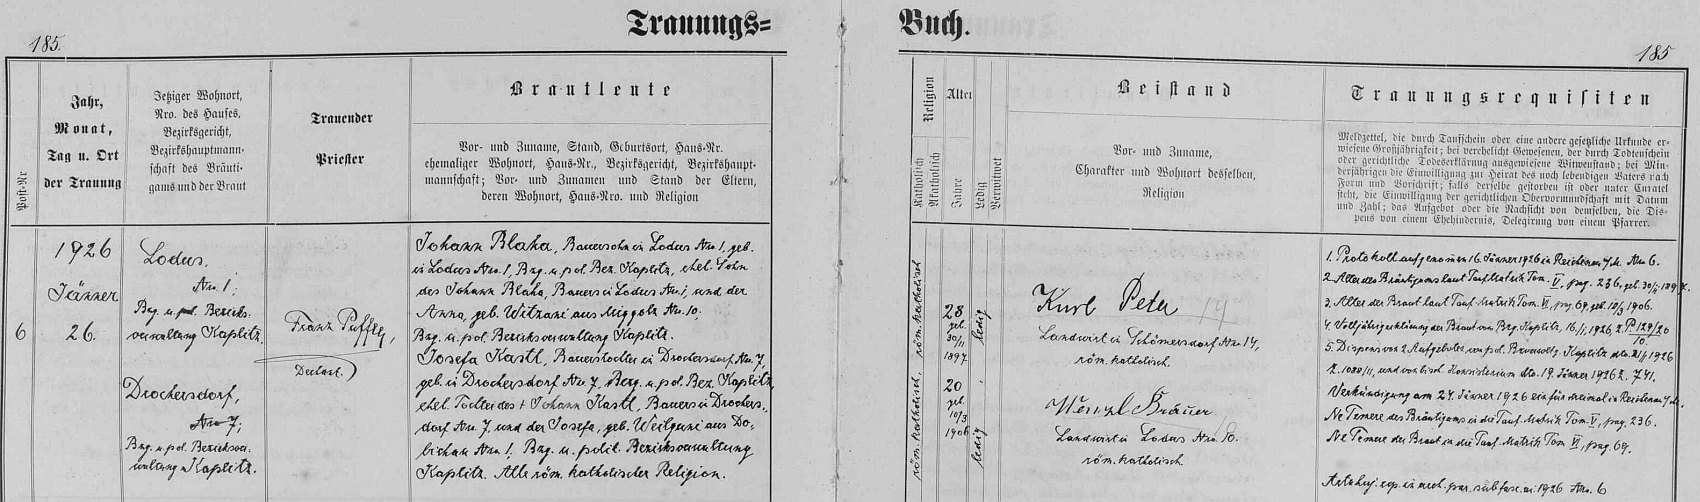 Trauungs=
Buch.
185.
185
Post-Nr
Jahr,
Monat,
Tag u. Ort
der Trauung
Jetziger Wohnort,
Nro. des Hauses,
Bezirksgericht,
Bezirkshauptmann-
schaft des Bräuti-
gams und der Braut
Trauender
Priester
Brautleute
Vor- und Zuname, Stand, Geburtsort, Haus-Nr.
ehemaliger Wohnort, Haus-Nr., Bezirksgericht, Bezirkshaupt-
mannschaft; Vor- und Zunamen und Stand der Eltern,
deren Wohnort, Haus-Nro. und Religion
Religion
Katholisch
Akatholisch
Alter
Jahre
Ledig
Verwitwet
Beistand
Vor- und Zuname,
Charakter und Wohnort desselben,
Religion
Trauungsrequisiten
Meldzettel, die durch Taufschein oder eine andere gesetzliche Urkunde er-
wiesene Großjährigkeit; bei verehelicht Gewesenen, der durch Todtenschein
oder gerichtliche Todeserklärung ausgewiesene Witwenstand; bei Min-
derjährigen die Einwilligung zur Heirat des noch lebendigen Vaters nach
Form und Vorschrift; falls derselbe gestorben ist oder unter Curatel
steht, die Einwilligung der gerichtlichen Obervormundschaft mit Datum
und Zahl; das Aufgebot oder die Nachsicht von demselben, die Dis-
pens von einem Ehehindernis, Delegirung von einem Pfarrer.
6
1926
Jänner
26.
Lodus,
Nro. 1;
Bzg. u. pol. Bezirks-
verwaltung Kaplitz.
Drochersdorf,
Nro 7;
Bzg. u. pol. Bezirksver-
waltung Kaplitz.
Franz Puffler,
Dechant.
Johann Blaha, Bauerssohn in Lodus Nro. 1, geb.
in Lodus Nro. 1, Bzg. u. pol. Bez. Kaplitz, ehel. Sohn
des Johann Blaha, Bauers in Lodus Nro. 1, und der
Anna, geb. Witzani aus Miggolz Nro. 10.
Bzg. u. pol. Bezirksverwaltung Kaplitz.
Josefa Kastl, Bauerstochter in Drochersdorf Nro. 7,
geb. in Drochersdorf Nro. 7, Bzg. u. pol. Bez. Kaplitz,
ehel. Tochter des † Johann Kastl, Bauers in Drochers-
dorf Nro. 7 und der Josefa, geb. Weilguni aus Do-
bichau Nro. 1, Bzg. u. polit. Bezirksverwaltung
Kaplitz. Alle röm. katholischer Religion.
röm. katholisch
28
geb.
30/11
1897
ledig
röm. katholisch
20
geb.
10/3
1906
ledig
Karl Peter
Landwirt in Schömersdorf Nro. 14,
röm. katholisch.
Wenzl Bräuer
Landwirt in Lodus Nro. 10.
röm. katholisch
1. Protokoll aufgenommen 16. Jänner 1926 in Reichenau Nro 6.
2. Alter des Bräutigams laut Taufmatrik Tom. V, pag. 236, geb. 30/11 1897.
3. Alter der Braut laut Taufmatrik Tom. VI, pag. 69, geb. 10/3 1906.
4. Volljährigerklärung der Braut von Bzg. Kaplitz, 16/1 1926 Z. P 129/20
10.
5. Dispens von 2 Aufgeboten von pol. Bezverwltg. Kaplitz dto. 1926
Z. 1088/11, und von bisch. Konsistorium dto. 19. Jänner 1926 Z. 741.
Verkündigung am 24. Jänner 1926 ein für dreimal in Reichenau
Ne Temere des Bräutigams in die Taufmatrik Tom. V, pag. 236.
Ne Temere der Braut in die Taufmatrik Tom VI, pag. 69.
1926 Nro. 6